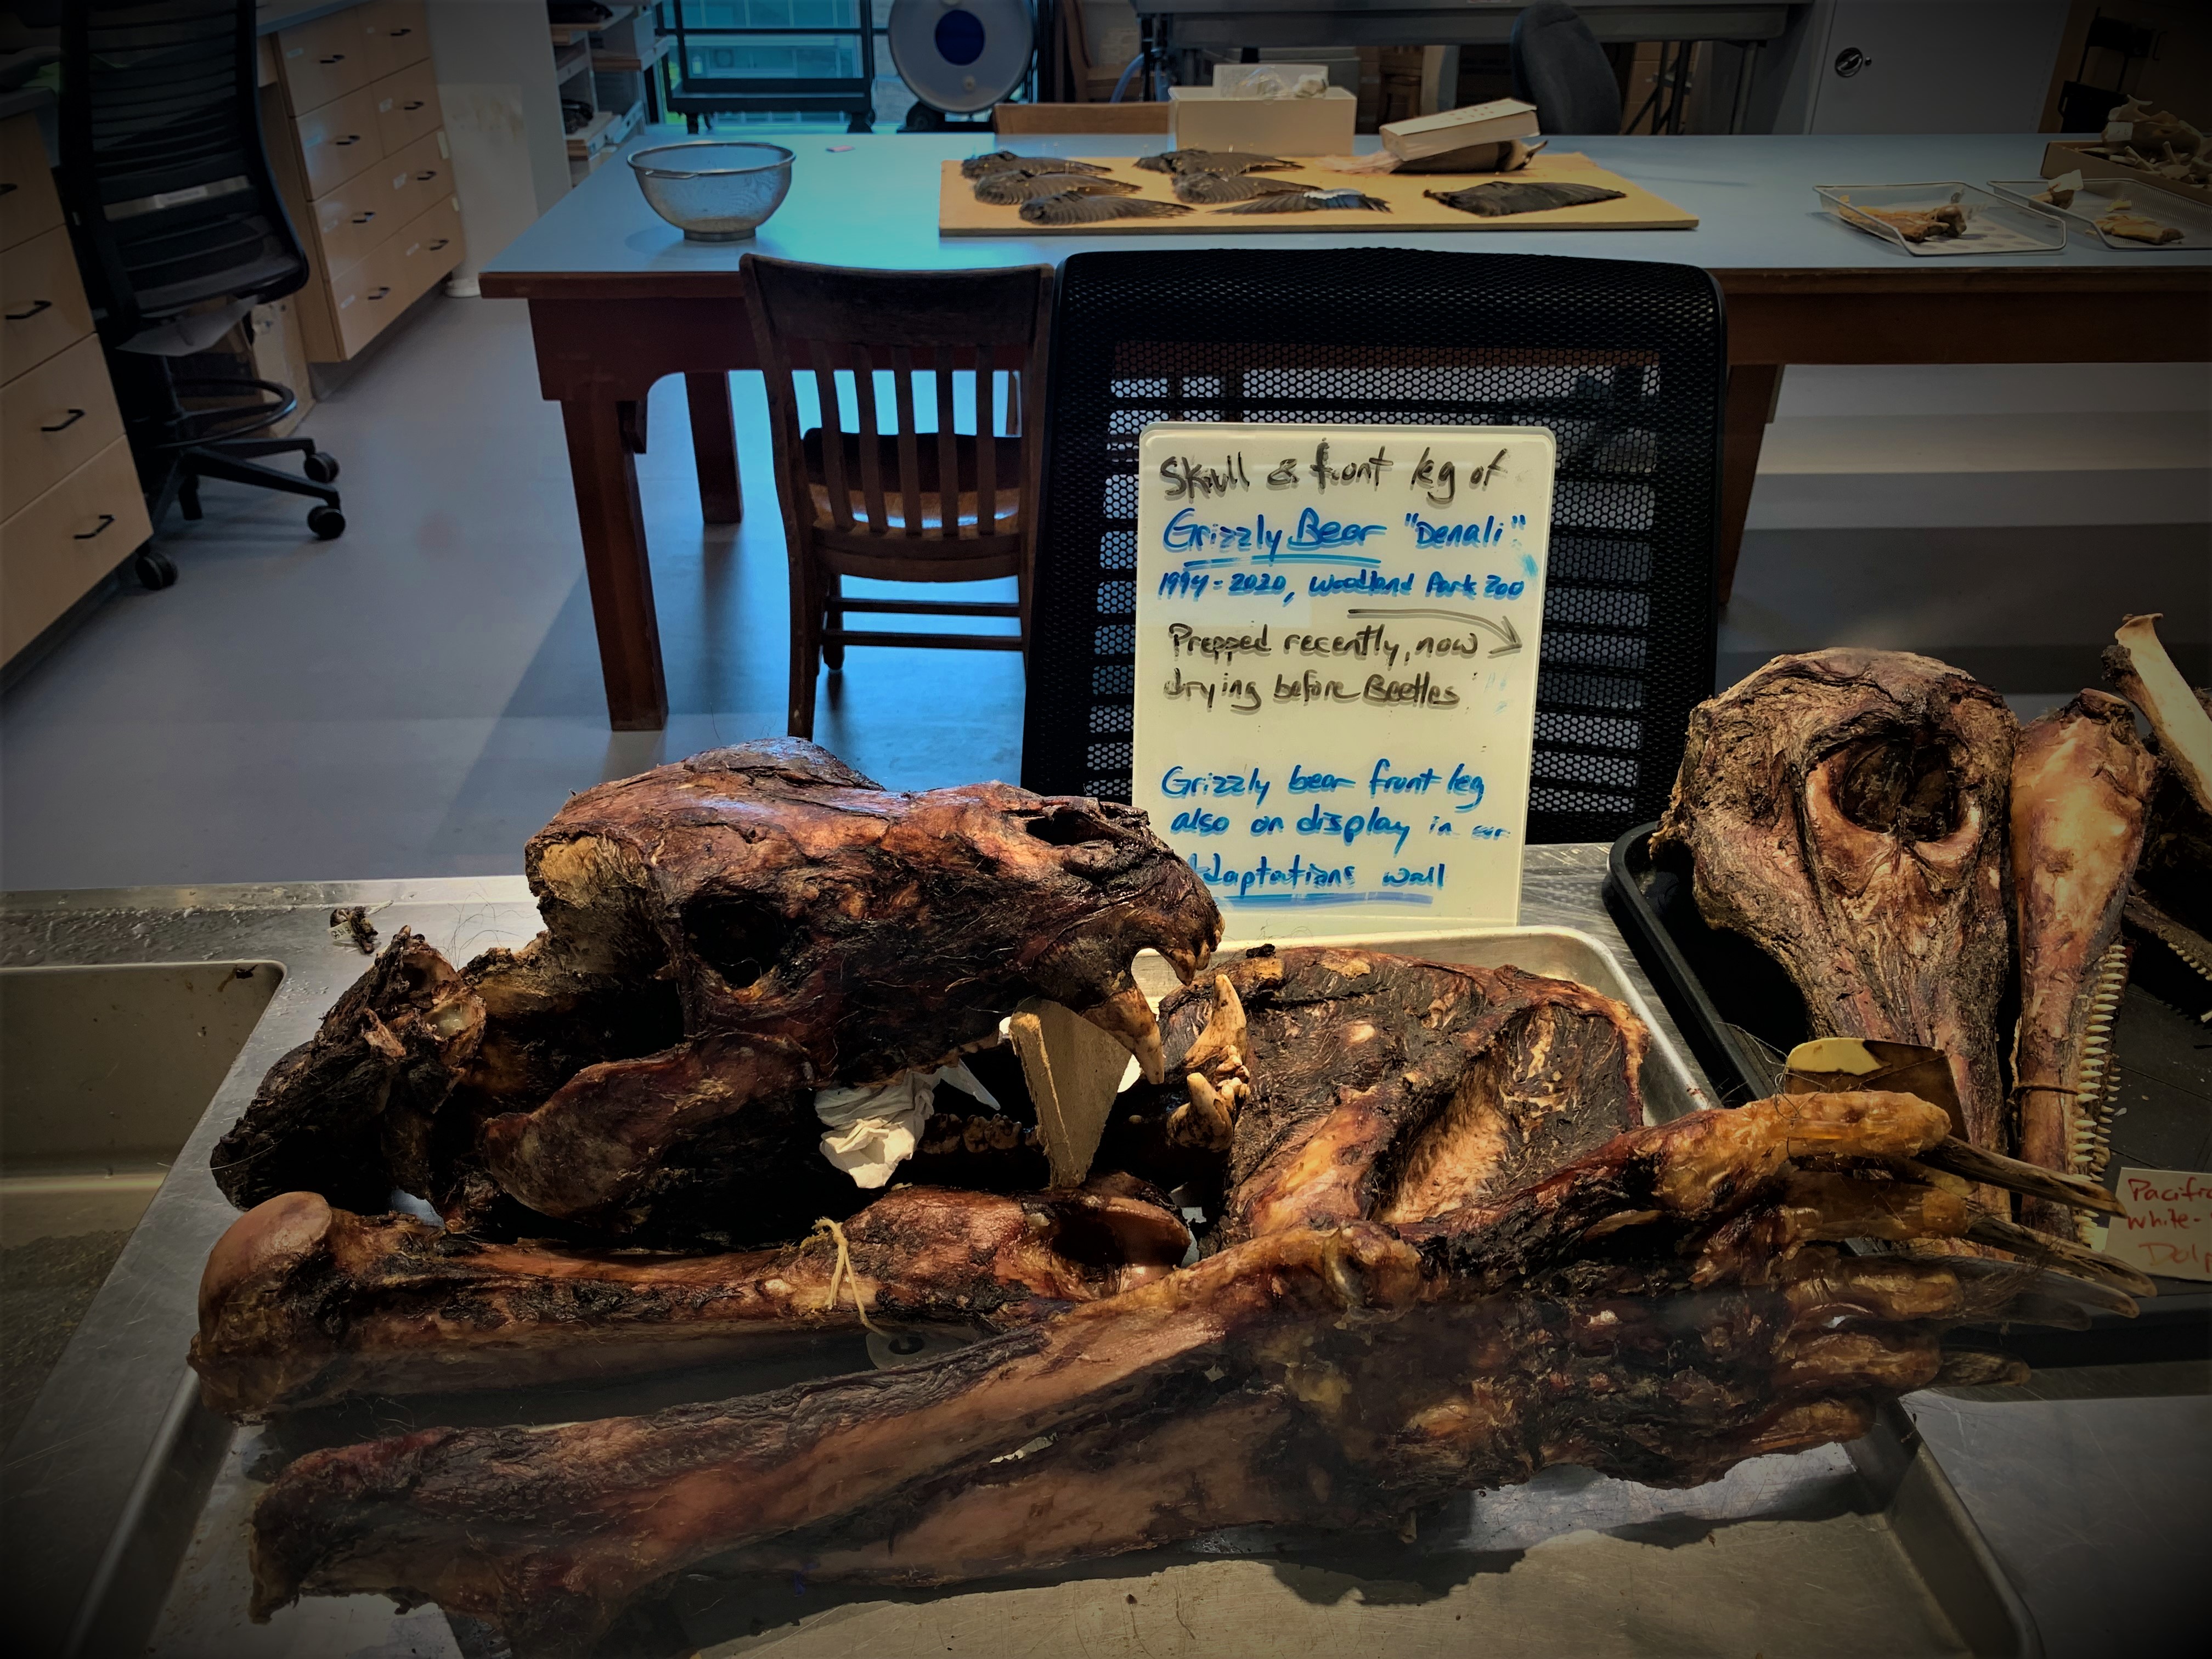 Skull & front leg of
Grizzly Bear "Denali"
1994-2020, Woodland Park Zoo
Prepped recently, now
drying before Beetles
Grizzly bear front leg
also on display in our
Adaptations wall
Pacific
White-
Dol